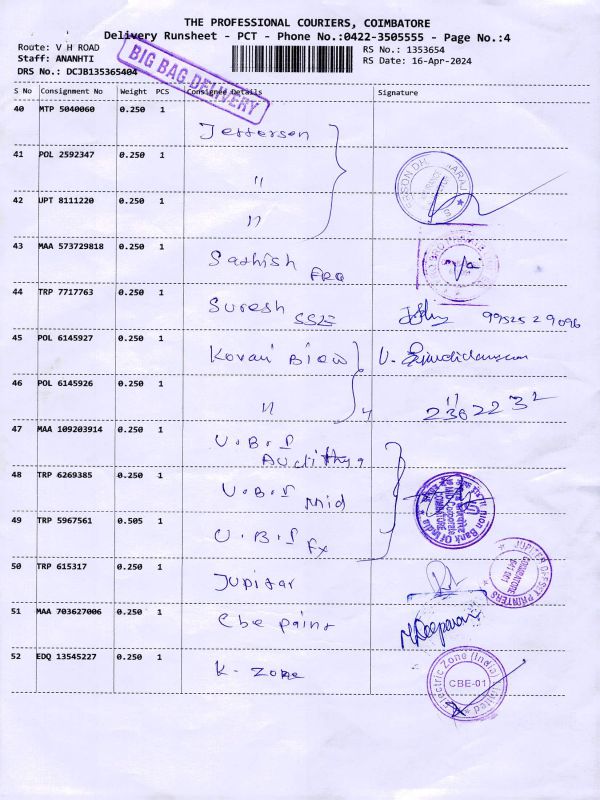 THE PROFESSIONAL COURIERS, COIMBATORE
Delivery Runsheet - PCT - Phone No.:0422-3505555 - Page No.:4
Route: V H ROAD
RS No.: 1353654
Staff: ANANHTI
RS Date: 16-Apr-2024
DRS No.: DCJB135365404
BIG BAG DELIVERY
S No Consignment No Weight PCS Consignee Details Signature
40 MTP 5040060 0.250 1 Jefferson
41 POL 2592347 0.250 1 "
42 UPT 8111220 0.250 1 "
43 MAA 573729818 0.250 1 Sathish
44 TRP 7717763 0.250 1 Suresh 99525 29096
45 POL 6145927 0.250 1 Kovai
46 POL 6145926 0.250 1 "
47 MAA 109203914 0.250 1 U.B.I
48 TRP 6269385 0.250 1 U.B.I Mid
Union Bank Of India
COIMBATORE
49 TRP 5967561 0.505 1 U.B.I Fx
50 TRP 615317 0.250 1 Jupitar
JUPITER OFFSET PRINTERS
COIMBATORE
641 001
51 MAA 703627006 0.250 1 Cbe paint
52 EDQ 13545227 0.250 1 K-Zone
Electric Zone (India) Limited
CBE-01